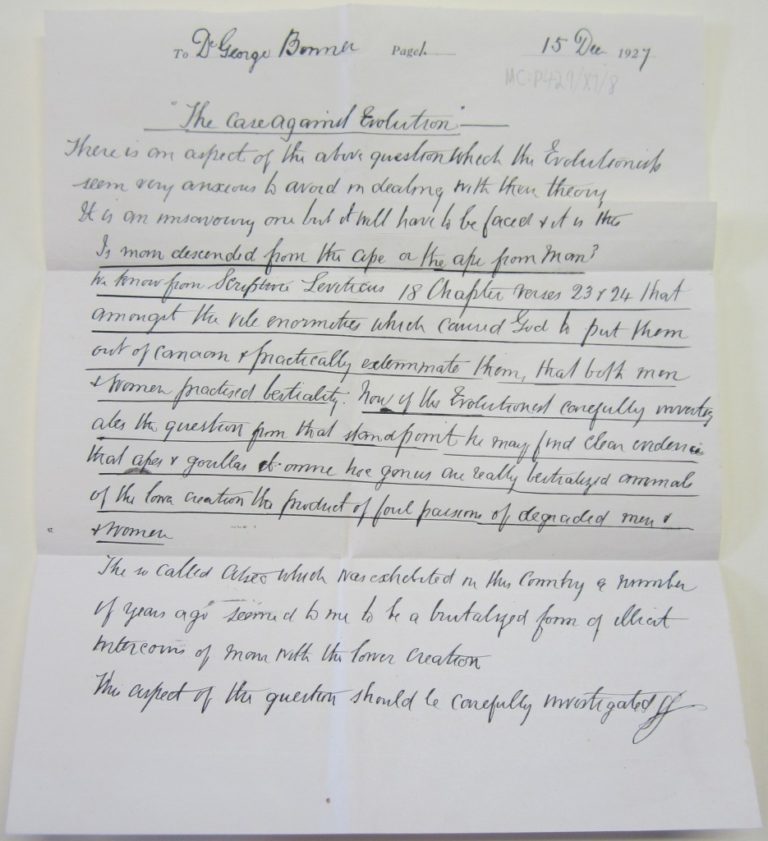 To Dr George Bonner Page 1. 15 Dec 1927
MC:P429/X7/8
"The Case Against Evolution"
There is an aspect of the above question which the Evolutionists
seem very anxious to avoid in dealing with their theory
It is an unsavoury one but it will have to be faced & it is this
Is man descended from the ape or the ape from man?
We know from Scripture Leviticus 18 Chapter verses 23 & 24 that
amongst the vile enormities which caused God to put them
out of canaan & practically exterminate them, that both men
& women practised bestiality. Now if the Evolutionist carefully investig
ates the question from that standpoint he may find clear evidence
that apes & gorillas et omne hoc genus are really bestialized animals
of the lower creation the product of foul passions of degraded men &
& women
The so called which was exhibited in this Country a number
of years ago seemed to me to be a brutalized form of illicit
intercourse of man with the lower creation
This aspect of the question should be carefully investigated